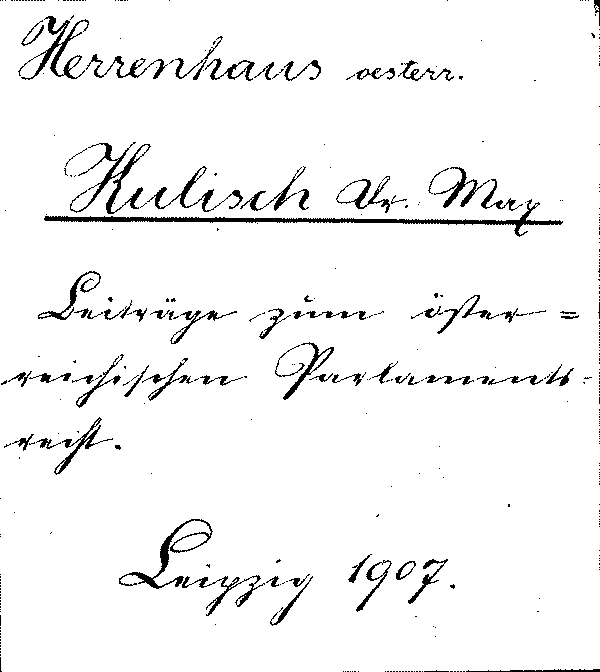 Herrenhaus oesterr.
Kulisch Dr. Max
Beiträge zum öster=
reichischen Parlaments-
recht.
Leipzig 1907.